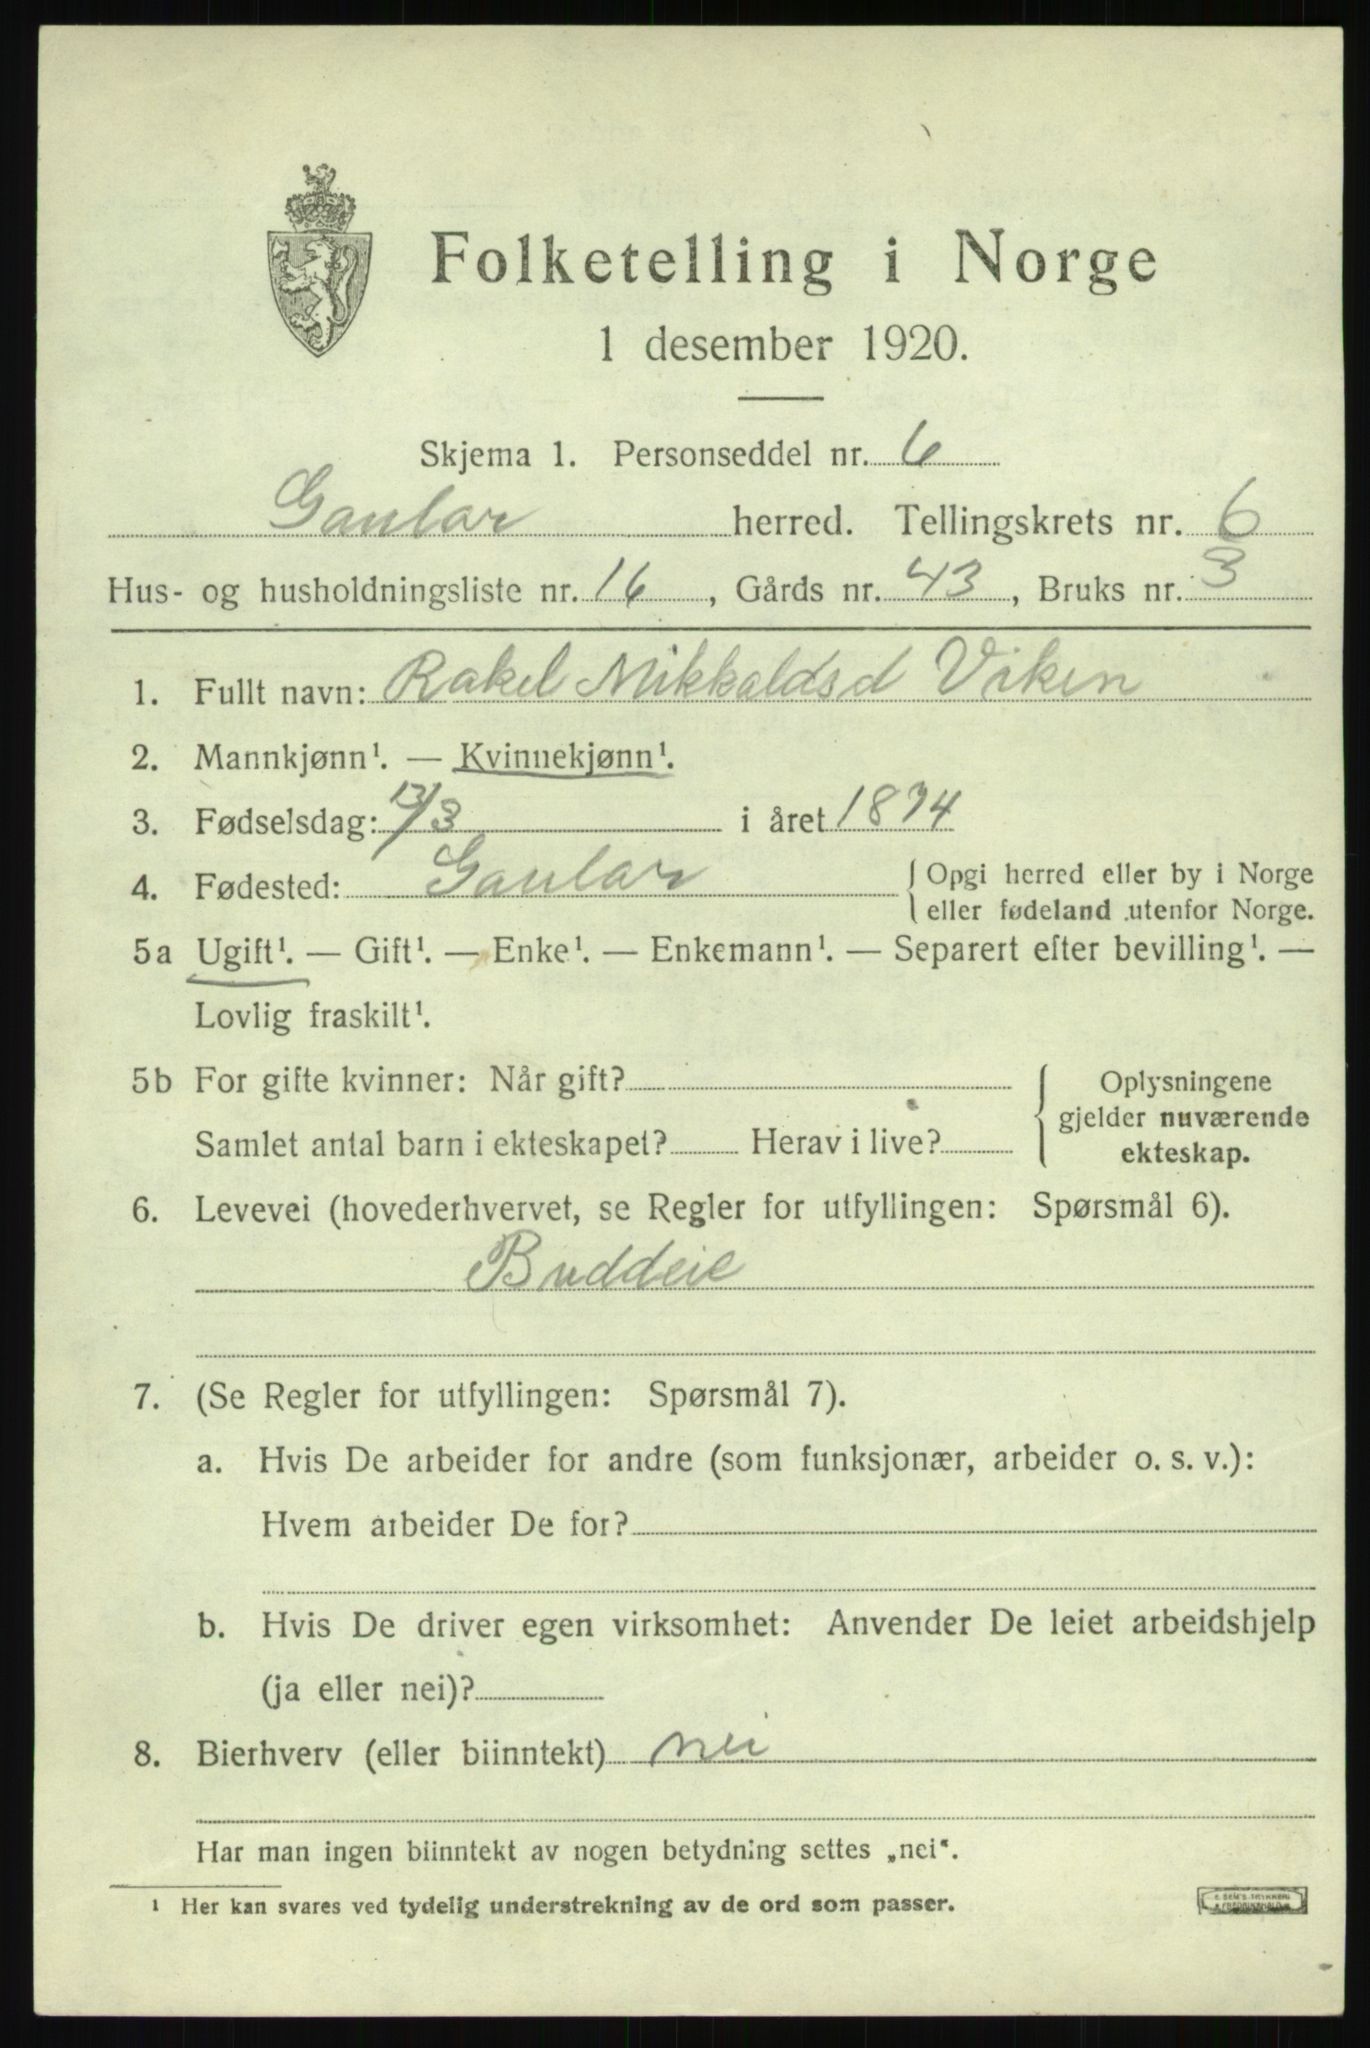 Folketelling i Norge
1 desember 1920.
Skjema 1. Personseddel nr. 6
Gaular herred. Tellingskrets nr. 6
Hus- og husholdningsliste nr. 16, Gårds nr. 43, Bruks nr. 3
1. Fullt navn: Rakel Mikkaldsd Viken
2. Mannkjønn¹. — Kvinnekjønn¹.
3. Fødselsdag: 13/3 i året 1874
4. Fødested: Gaular { Opgi herred eller by i Norge
eller fødeland utenfor Norge.
5a Ugift¹. — Gift¹. — Enke¹. — Enkemann¹. — Separert efter bevilling¹. —
Lovlig fraskilt¹.
5b For gifte kvinner: Når gift? { Oplysningene
gjelder nuværende
Samlet antal barn i ekteskapet? Herav i live? ekteskap.
6. Levevei (hovederhvervet, se Regler for utfyllingen: Spørsmål 6).
Buddeie
7. (Se Regler for utfyllingen: Spørsmål 7).
a. Hvis De arbeider for andre (som funksjonær, arbeider o. s. v.):
Hvem arbeider De for?
b. Hvis De driver egen virksomhet: Anvender De leiet arbeidshjelp
(ja eller nei)?
8. Bierhverv (eller biinntekt) nei
Har man ingen biinntekt av nogen betydning settes „nei“.
¹ Her kan svares ved tydelig understrekning av de ord som passer.